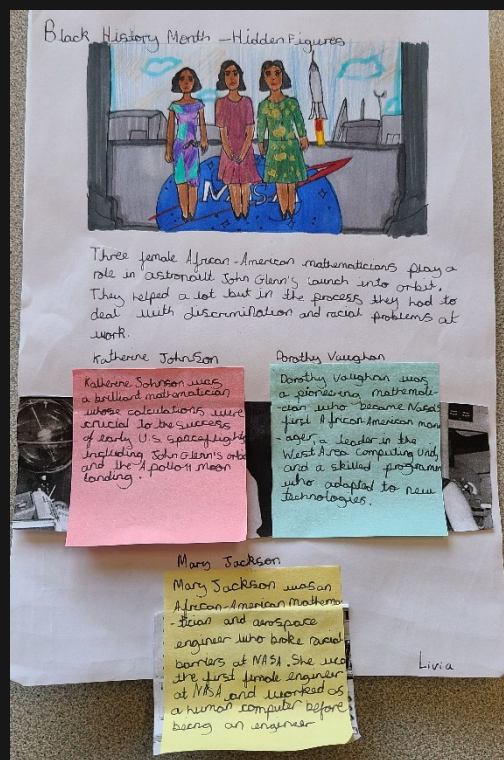 Black History Month - Hidden Figures
NASA
Three female African-American mathematicians play a
role in astronault John Glenn's launch into orbit.
They helped a lot but in the process they had to
deal with discrimination and racial problems at
work.
Katherine Johnson
Katherine Johnson was
a brilliant mathematician
whose calculations were
crucial to the success
of early U.S. spaceflights
including John Glenn's orbit
and the Apollo 11 moon
landing.
Dorothy Vaughan
Dorothy Vaughan was
a pioneering mathemati-
-cian who became Nasa's
first African-American man
-ager, a leader in the
West Area Computing
and a skilled programm
who adapted to new
technologies.
Mary Jackson
Mary Jackson was an
African-American mathema
-tician and aerospace
engineer who broke racial
barriers at NASA. She was
the first female engineer
at NASA and worked as
a human computer before
being an engineer
Livia